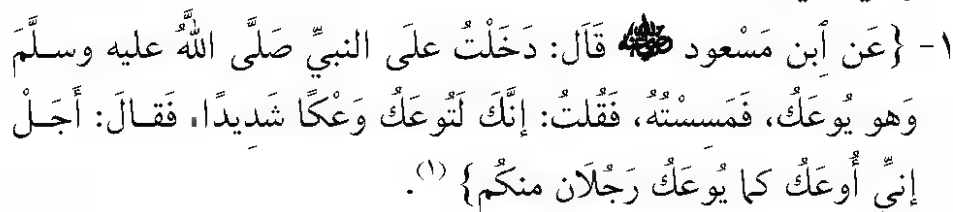 ١- {عَن ٱبن مَسْعود ﷺ قَال: دَخَلْتُ علَى النبيِّ صَلَّى اللهُ عليه وسلَّمَ
وَهو يُوعَكُ، فَمَسِسْتُهُ، فَقُلتُ: إنَّكَ لَتُوعَكُ وَعْكًا شَدِيدًا، فَقالَ: أَجَلْ
إنيِّ أُوعَكُ كما يُوعَكُ رَجُلَان منكُم} (١).